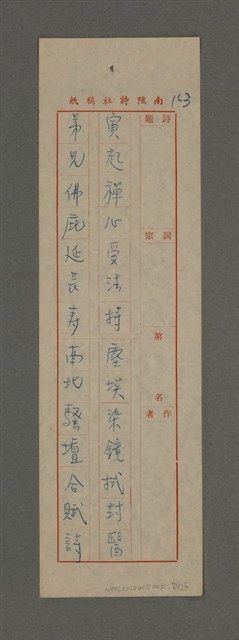 南陔詩社稿紙
163
詩題
詞宗
第 名
作者
寅起禪心受法持塵埃染鏡拭封醫
弟兄佛庇延長壽南北騷壇合賦詩